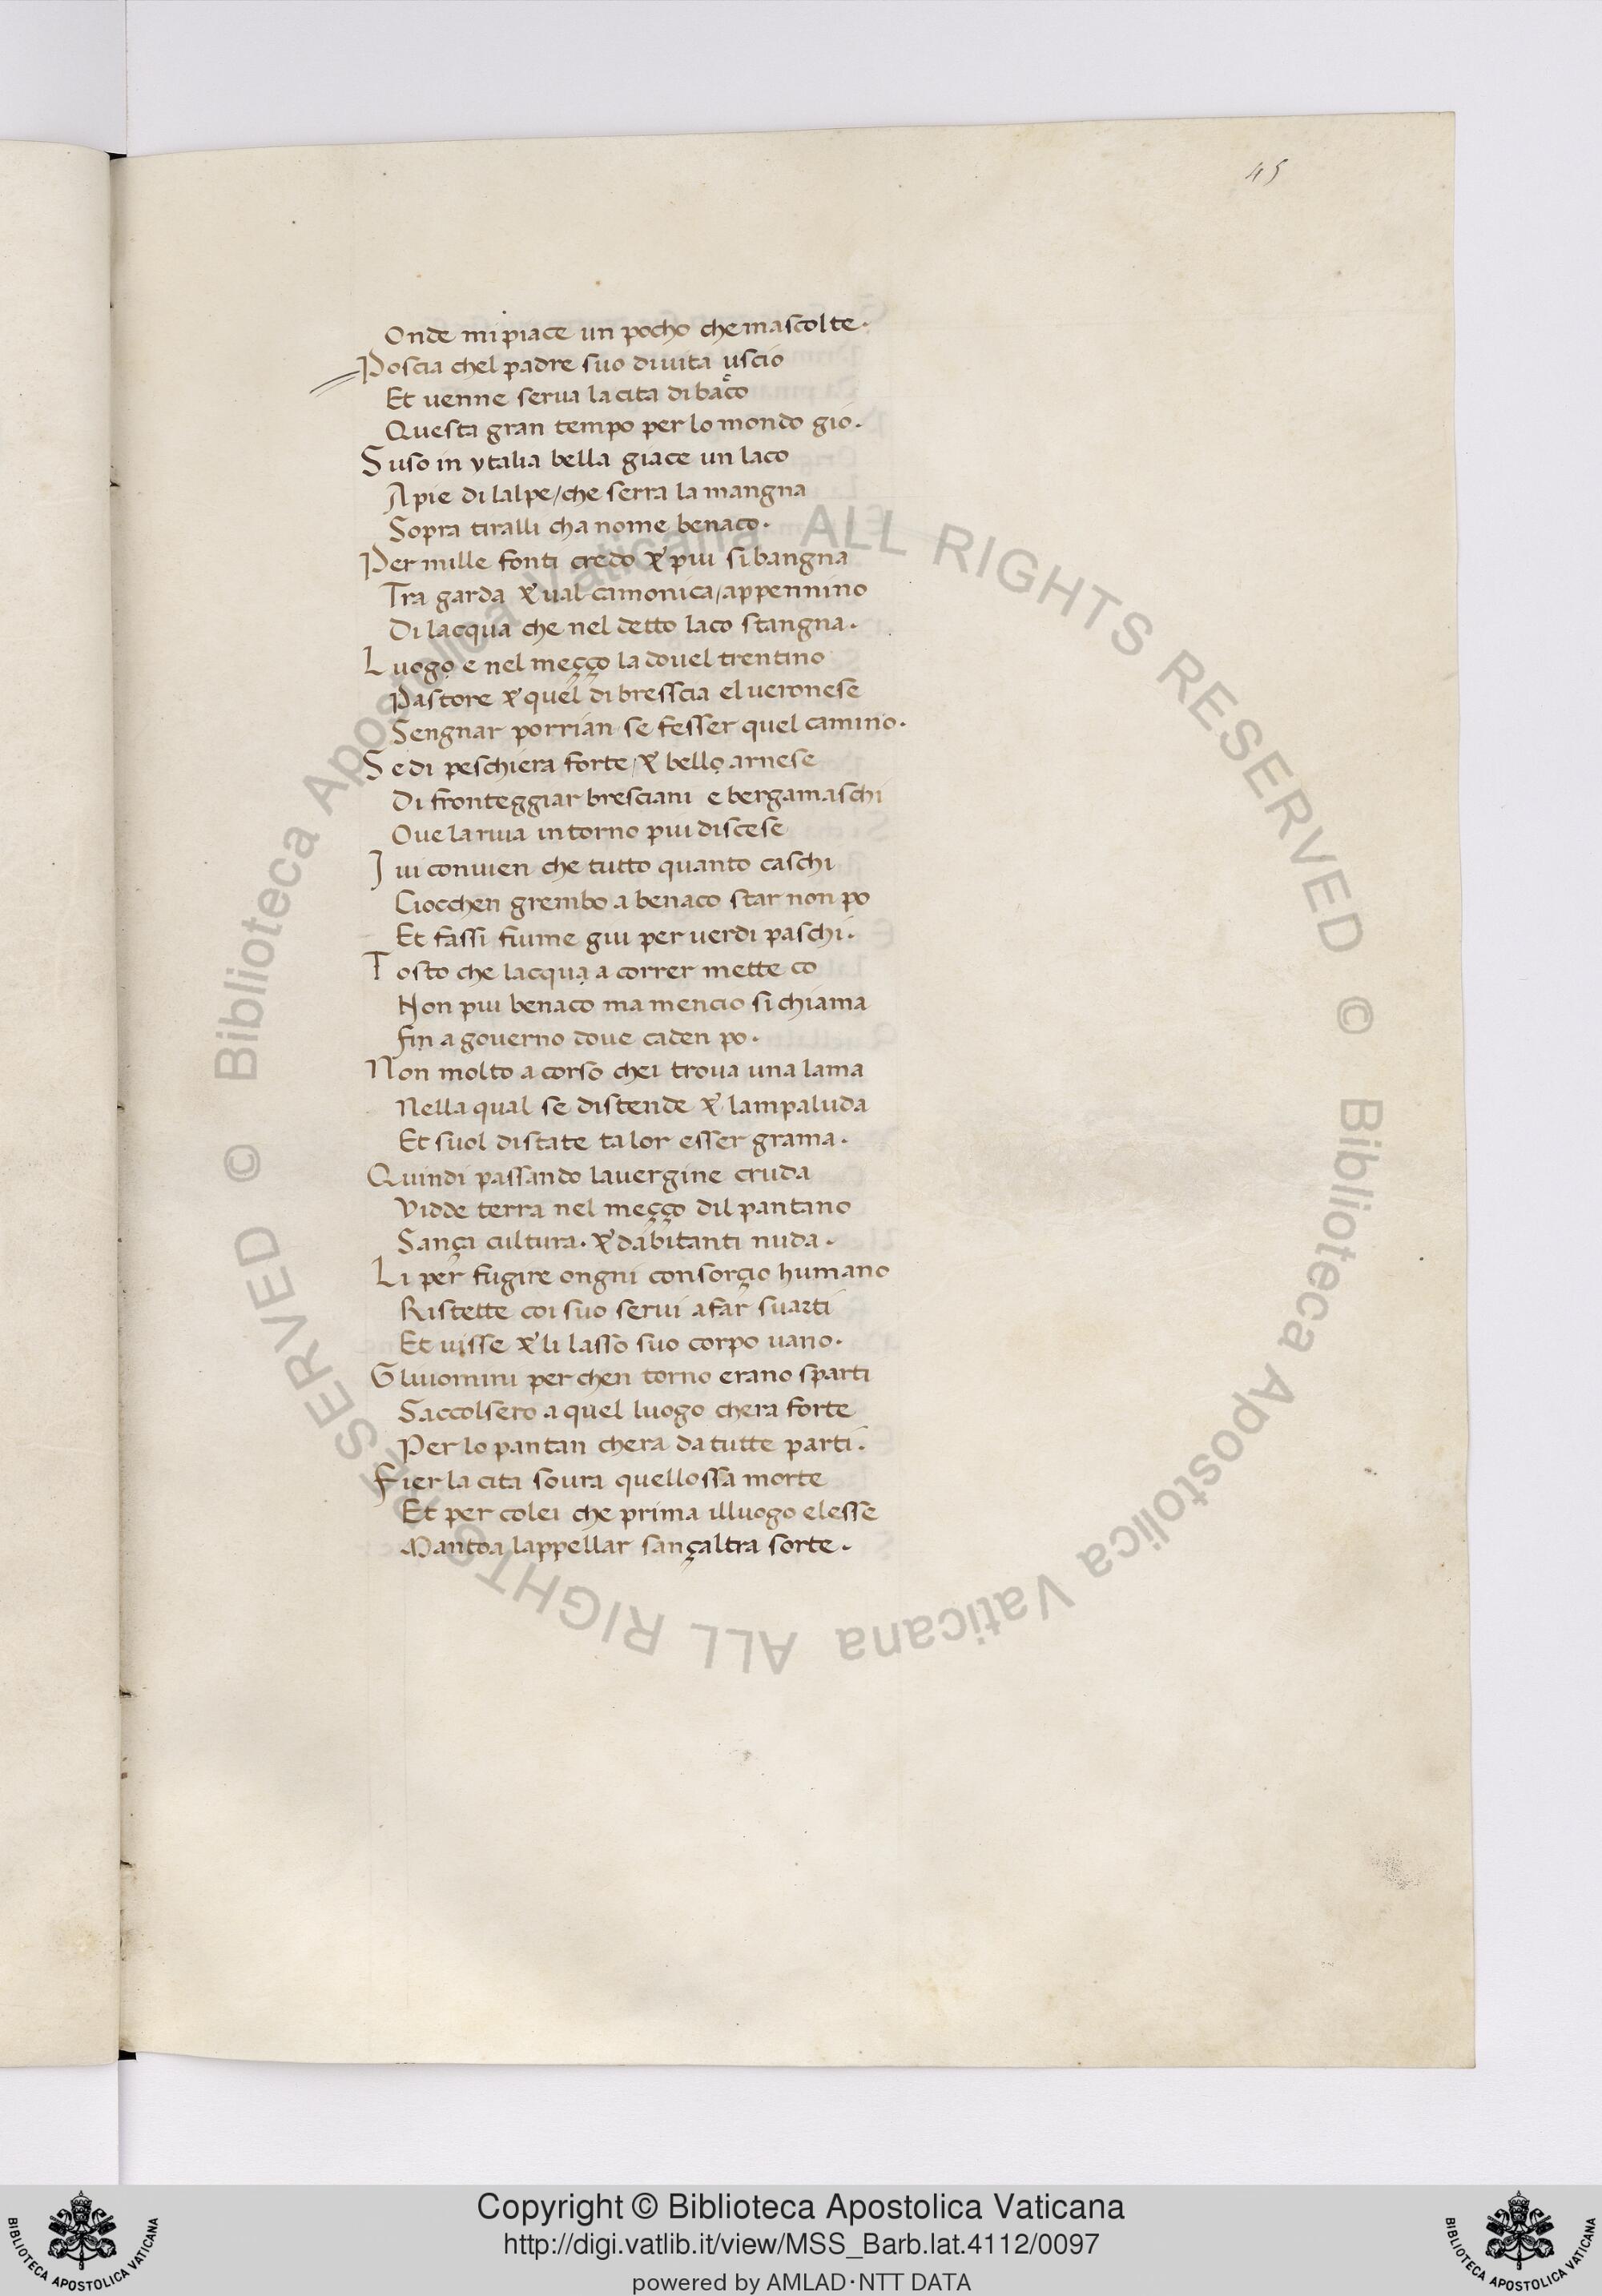 45
Onde mi piace un pocho che mascolte.
Poscia chel padre suo di uita uscio
Et uenne serua la cita di baco
Questa gran tempo per lo mondo gio.
Suso in ytalia bella giace un laco
A pie di lalpe / che serra la mangna
Sopra tiralli cha nome benaco.
Per mille fonti credo & piu si bangna
Tra garda & ual camonica / appennino
Di lacqua che nel detto laco stangna.
Luogo e nel meçço la douel trentino
Pastore & quel di bresscia el ueronese
Sengnar porrian se fesser quel camino.
Sedi peschiera forte / & bello arnese
Di fronteggiar bresciani e bergamaschi
Oue la riua intorno piu discese
Iui conuien che tutto quanto caschi
Ciocchen grembo a benaco star non po
Et fassi fiume giu per uerdi paschi.
Tosto che lacqua a correr mette co
Non piu benaco ma mencio si chiama
Fin a gouerno doue caden po.
Non molto a corso chei troua una lama
Nella qual se distende & lampaluda
Et suol distate talor esser grama.
Quindi passando la uergine cruda
Vidde terra nel meçço dil pantano
Sança cultura. & dabitanti nuda.
Li per fugire ongni consorçio humano
Ristette coi suo serui a far suarti
Et uisse & li lasso suo corpo uano.
Gluuomini per chen torno erano sparti
Saccolsero a quel luogo chera forte
Per lo pantan chera da tutte parti.
Fier la cita soura quellossa morte
Et per colei che prima illuogo elesse
Mantoa lappellar sançaltra sorte.
© Biblioteca Apostolica Vaticana ALL RIGHTS RESERVED © Biblioteca Apostolica Vaticana ALL RIGHTS RESERVED
Copyright © Biblioteca Apostolica Vaticana
http://digi.vatlib.it/view/MSS_Barb.lat.4112/0097
powered by AMLAD·NTT DATA
BIBLIOTECA APOSTOLICA VATICANA
BIBLIOTECA APOSTOLICA VATICANA